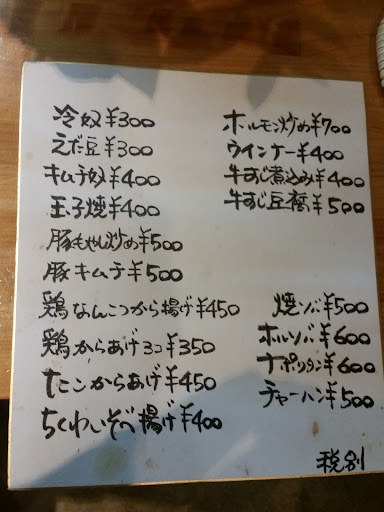 冷奴¥300
えだ豆¥300
キムチ奴¥400
玉子焼¥400
豚もやし炒め¥500
豚キムチ¥500
鶏なんこつから揚げ¥450
鶏からあげ3コ¥350
たこからあげ¥450
ちくわいそべ揚げ¥400
ホルモン炒め¥700
ウインナー¥400
牛すじ煮込み¥400
牛すじ豆腐¥500
焼ソバ¥500
ホルソバ¥600
ナポリタン¥600
チャーハン¥500
税別